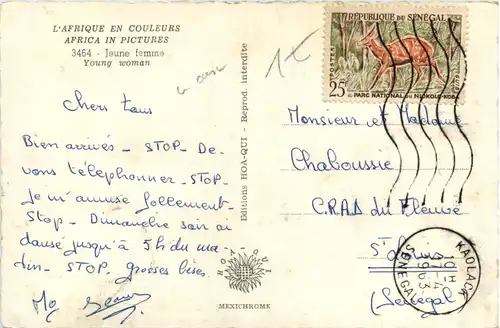 L'AFRIQUE EN COULEURS
AFRICA IN PICTURES
3464 - Jeune femme
Young woman
Chers tous
Bien arrivés - STOP - De-
vons téléphonner - STOP -
Je m'amuse follement -
Stop - Dimanche soir ai
dansé jusqu'à 5h du ma-
tin - STOP. grosses bises.
Editions HOA-QUI - Reprod. interdite
HOA-QUI
MEXICHROME
RÉPUBLIQUE DU SÉNÉGAL
POSTES
25F
PARC NATIONAL DU NIOKOLO-KOBA
Monsieur et Madame
Chaboussie
C.R.A.D du Fleuve
St Louis
(Sénégal)
KAOLACK
10 H
1963
SENEGAL